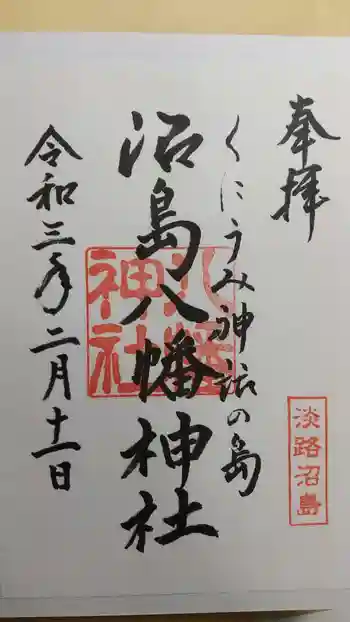 奉拝
淡路沼島
くにうみ神話の島
沼島八幡神社
八幡神社
令和三年二月十一日